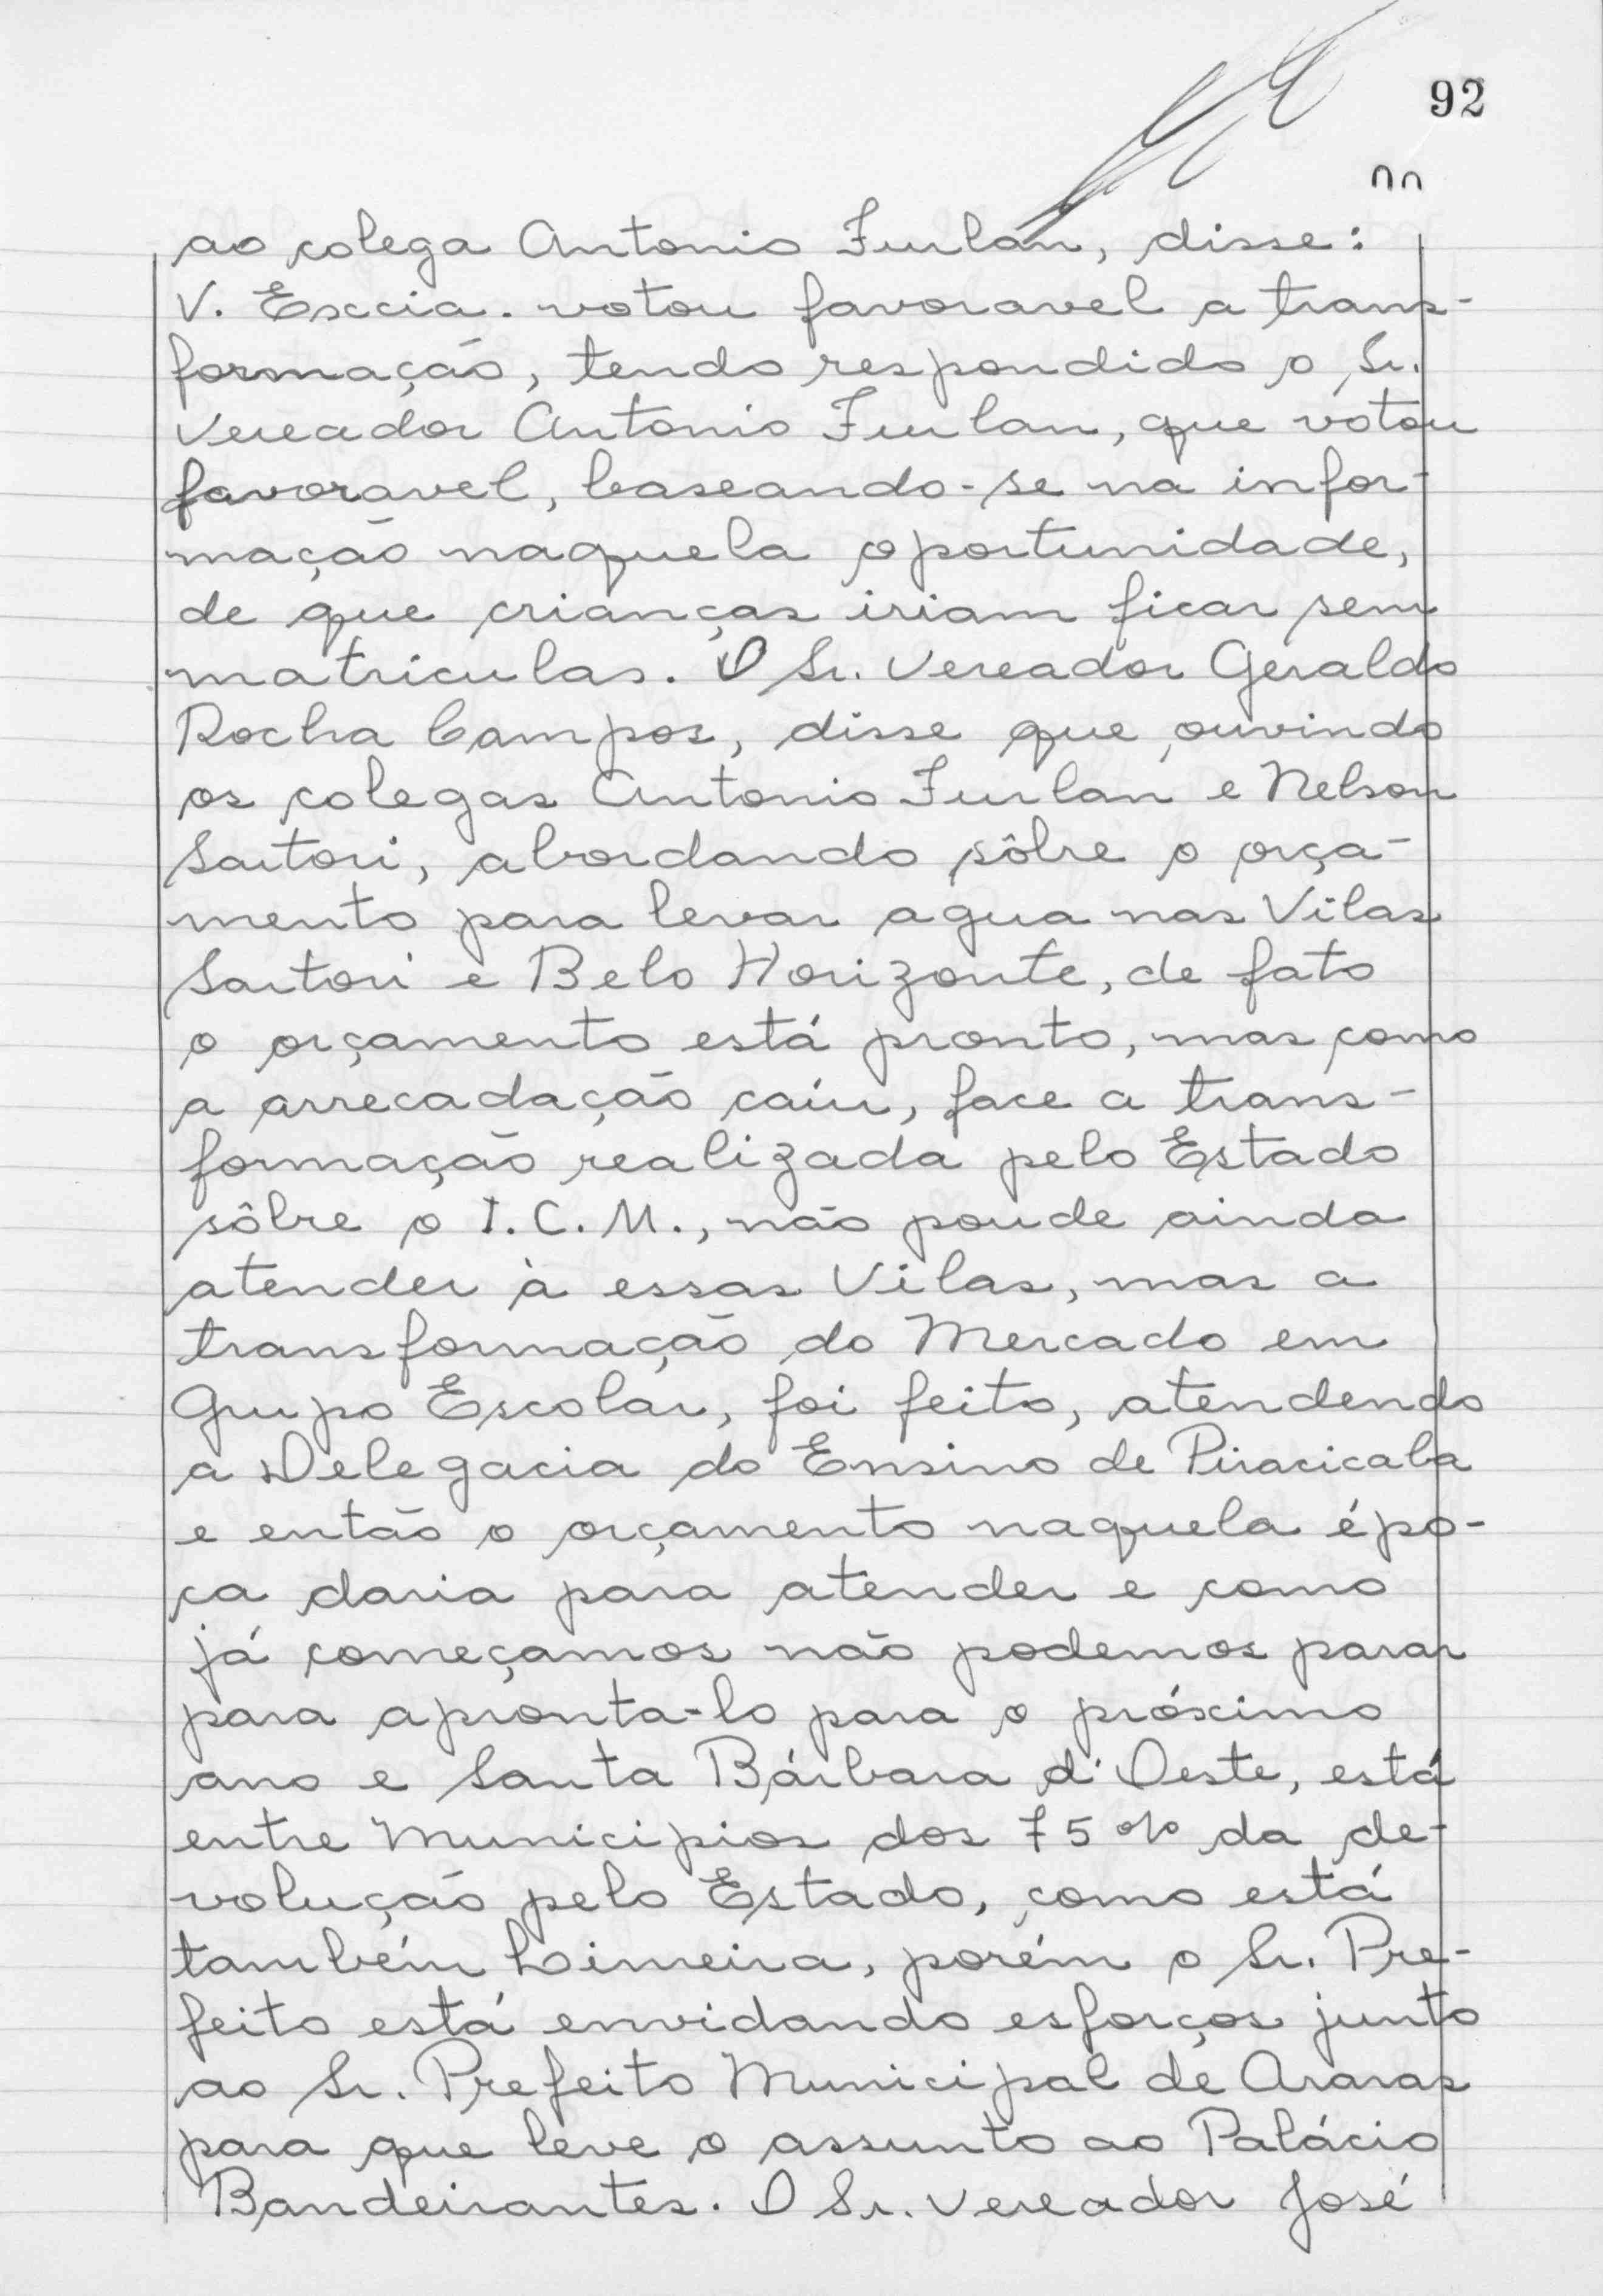 92
ao colega Antonio Furlan, disse:
V. Exccia. votou favoravel a trans-
formação, tendo respondido o Sr.
Vereador Antonio Furlan, que votou
favoravel, baseando-se na infor-
mação naquela oportunidade,
de que crianças iriam ficar sem
matriculas. O Sr. Vereador Geraldo
Rocha Campos, disse que ouvindo
os colegas Antonio Furlan e Nelson
Sartori, abordando sôbre o orça-
mento para levar agua nas Vilas
Sartori e Belo Horizonte, de fato
o orçamento está pronto, mas como
a arrecadação caiu, face a trans-
formação realizada pelo Estado
sôbre o I.C.M., não poude ainda
atender à essas Vilas, mas a
transformação do Mercado em
Grupo Escolar, foi feito, atendendo
a Delegacia do Ensino de Piracicaba
e então o orçamento naquela épo-
ca daria para atender e como
já começamos não podemos parar
para apronta-lo para o próximo
ano e Santa Bárbara d'Oeste, está
entre Municipios dos 75% da de-
volução pelo Estado, como está
também Limeira, porém o Sr. Pre-
feito está envidando esforços junto
ao Sr. Prefeito Municipal de Araras
para que leve o assunto ao Palácio
Bandeirantes. O Sr. Vereador José